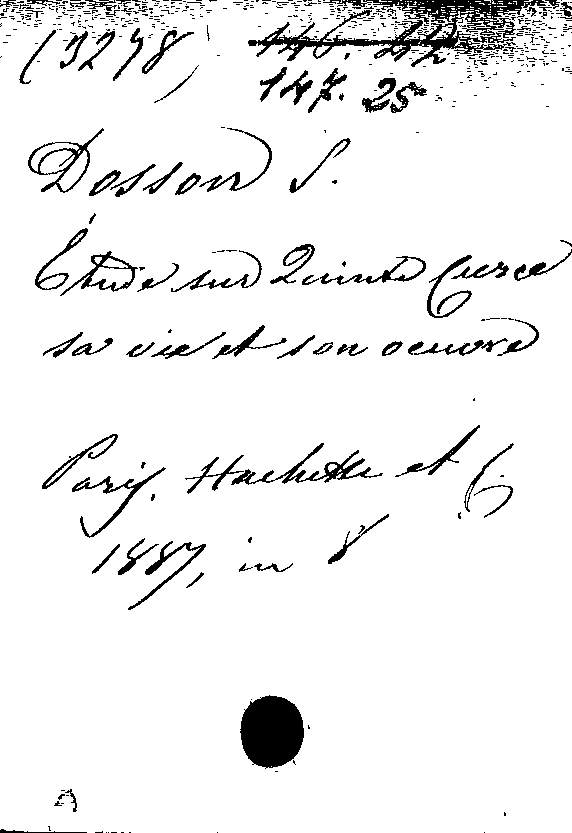 (3278) 146. 42
147. 25
Dosson S.
Étude sur Quinte Curce
sa vie et son oeuvre
Paris. Hachette et C.
1887, in 8
A